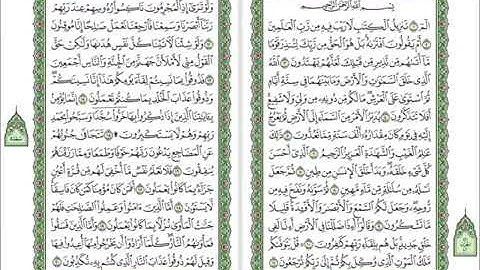 بِسْمِ ٱللَّهِ ٱلرَّحْمَٰنِ ٱلرَّحِيمِ
الٓمٓ ١ تَنزِيلُ ٱلْكِتَٰبِ لَا رَيْبَ فِيهِ مِن رَّبِّ ٱلْعَٰلَمِينَ
٢ أَمْ يَقُولُونَ ٱفْتَرَىٰهُ بَلْ هُوَ ٱلْحَقُّ مِن رَّبِّكَ لِتُنذِرَ قَوْمًا
مَّآ أَتَىٰهُم مِّن نَّذِيرٍ مِّن قَبْلِكَ لَعَلَّهُمْ يَهْتَدُونَ ٣ ٱللَّهُ
ٱلَّذِى خَلَقَ ٱلسَّمَٰوَٰتِ وَٱلْأَرْضَ وَمَا بَيْنَهُمَا فِى سِتَّةِ أَيَّامٍ
ثُمَّ ٱسْتَوَىٰ عَلَى ٱلْعَرْشِ مَا لَكُم مِّن دُونِهِۦ مِن وَلِىٍّ وَلَا شَفِيعٍ
أَفَلَا تَتَذَكَّرُونَ ٤ يُدَبِّرُ ٱلْأَمْرَ مِنَ ٱلسَّمَآءِ إِلَى ٱلْأَرْضِ ثُمَّ يَعْرُجُ
إِلَيْهِ فِى يَوْمٍ كَانَ مِقْدَارُهُۥٓ أَلْفَ سَنَةٍ مِّمَّا تَعُدُّونَ ٥ ذَٰلِكَ
عَٰلِمُ ٱلْغَيْبِ وَٱلشَّهَٰدَةِ ٱلْعَزِيزُ ٱلرَّحِيمُ ٦ ٱلَّذِىٓ أَحْسَنَ
كُلَّ شَىْءٍ خَلَقَهُۥ وَبَدَأَ خَلْقَ ٱلْإِنسَٰنِ مِن طِينٍ ٧ ثُمَّ جَعَلَ
نَسْلَهُۥ مِن سُلَٰلَةٍ مِّن مَّآءٍ مَّهِينٍ ٨ ثُمَّ سَوَّىٰهُ وَنَفَخَ فِيهِ مِن
رُّوحِهِۦ وَجَعَلَ لَكُمُ ٱلسَّمْعَ وَٱلْأَبْصَٰرَ وَٱلْأَفْـِٔدَةَ قَلِيلًا
مَّا تَشْكُرُونَ ٩ وَقَالُوٓا۟ أَءِذَا ضَلَلْنَا فِى ٱلْأَرْضِ أَءِنَّا لَفِى
خَلْقٍ جَدِيدٍ بَلْ هُم بِلِقَآءِ رَبِّهِمْ كَٰفِرُونَ ١٠ قُلْ يَتَوَفَّىٰكُم
مَّلَكُ ٱلْمَوْتِ ٱلَّذِى وُكِّلَ بِكُمْ ثُمَّ إِلَىٰ رَبِّكُمْ تُرْجَعُونَ ١١
وَلَوْ تَرَىٰٓ إِذِ ٱلْمُجْرِمُونَ نَاكِسُوا۟ رُءُوسِهِمْ عِندَ رَبِّهِمْ
رَبَّنَآ أَبْصَرْنَا وَسَمِعْنَا فَٱرْجِعْنَا نَعْمَلْ صَٰلِحًا إِنَّا مُوقِنُونَ
١٢ وَلَوْ شِئْنَا لَءَاتَيْنَا كُلَّ نَفْسٍ هُدَىٰهَا وَلَٰكِنْ حَقَّ
ٱلْقَوْلُ مِنِّى لَأَمْلَأَنَّ جَهَنَّمَ مِنَ ٱلْجِنَّةِ وَٱلنَّاسِ أَجْمَعِينَ
١٣ فَذُوقُوا۟ بِمَا نَسِيتُمْ لِقَآءَ يَوْمِكُمْ هَٰذَآ إِنَّا نَسِينَٰكُمْ
وَذُوقُوا۟ عَذَابَ ٱلْخُلْدِ بِمَا كُنتُمْ تَعْمَلُونَ ١٤ إِنَّمَا يُؤْمِنُ
بِـَٔايَٰتِنَا ٱلَّذِينَ إِذَا ذُكِّرُوا۟ بِهَا خَرُّوا۟ سُجَّدًا وَسَبَّحُوا۟ بِحَمْدِ
رَبِّهِمْ وَهُمْ لَا يَسْتَكْبِرُونَ ۩ ١٥ تَتَجَافَىٰ جُنُوبُهُمْ
عَنِ ٱلْمَضَاجِعِ يَدْعُونَ رَبَّهُمْ خَوْفًا وَطَمَعًا وَمِمَّا رَزَقْنَٰهُمْ
يُنفِقُونَ ١٦ فَلَا تَعْلَمُ نَفْسٌ مَّآ أُخْفِىَ لَهُم مِّن قُرَّةِ أَعْيُنٍ
جَزَآءًۢ بِمَا كَانُوا۟ يَعْمَلُونَ ١٧ أَفَمَن كَانَ مُؤْمِنًا كَمَن كَانَ فَاسِقًا
لَّا يَسْتَوُۥنَ ١٨ أَمَّا ٱلَّذِينَ ءَامَنُوا۟ وَعَمِلُوا۟ ٱلصَّٰلِحَٰتِ فَلَهُمْ
جَنَّٰتُ ٱلْمَأْوَىٰ نُزُلًۢا بِمَا كَانُوا۟ يَعْمَلُونَ ١٩ وَأَمَّا ٱلَّذِينَ فَسَقُوا۟
فَمَأْوَىٰهُمُ ٱلنَّارُ كُلَّمَآ أَرَادُوٓا۟ أَن يَخْرُجُوا۟ مِنْهَآ أُعِيدُوا۟ فِيهَا
وَقِيلَ لَهُمْ ذُوقُوا۟ عَذَابَ ٱلنَّارِ ٱلَّذِى كُنتُم بِهِۦ تُكَذِّبُونَ ٢٠